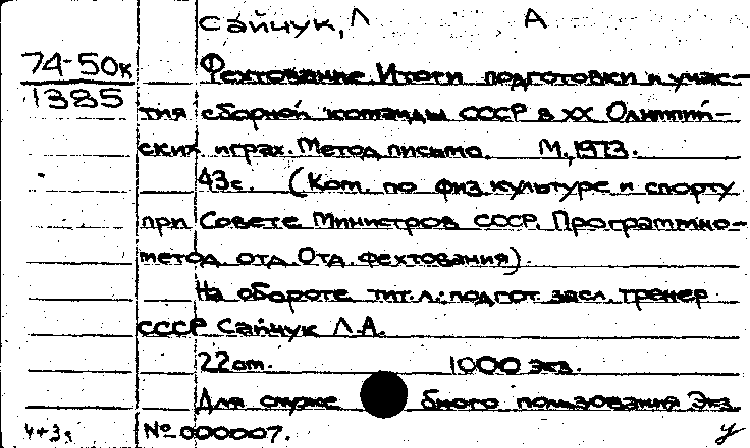 Сайчук, Л А
74-50к
1385
Фехтование. Итоги подготовки и учас-
тия сборной команды СССР в XX Олимпий-
ских играх. Метод. письмо. М., 1973.
43с. (Ком. по физ. культуре и спорту
при Совете Министров СССР. Программно-
метод. отд. Отд. фехтования).
На обороте тит. л.: подгот. засл. тренер
СССР Сайчук Л.А.
22см. 1000 экз.
Для служебного пользования Экз.
4+3г № 000007. у